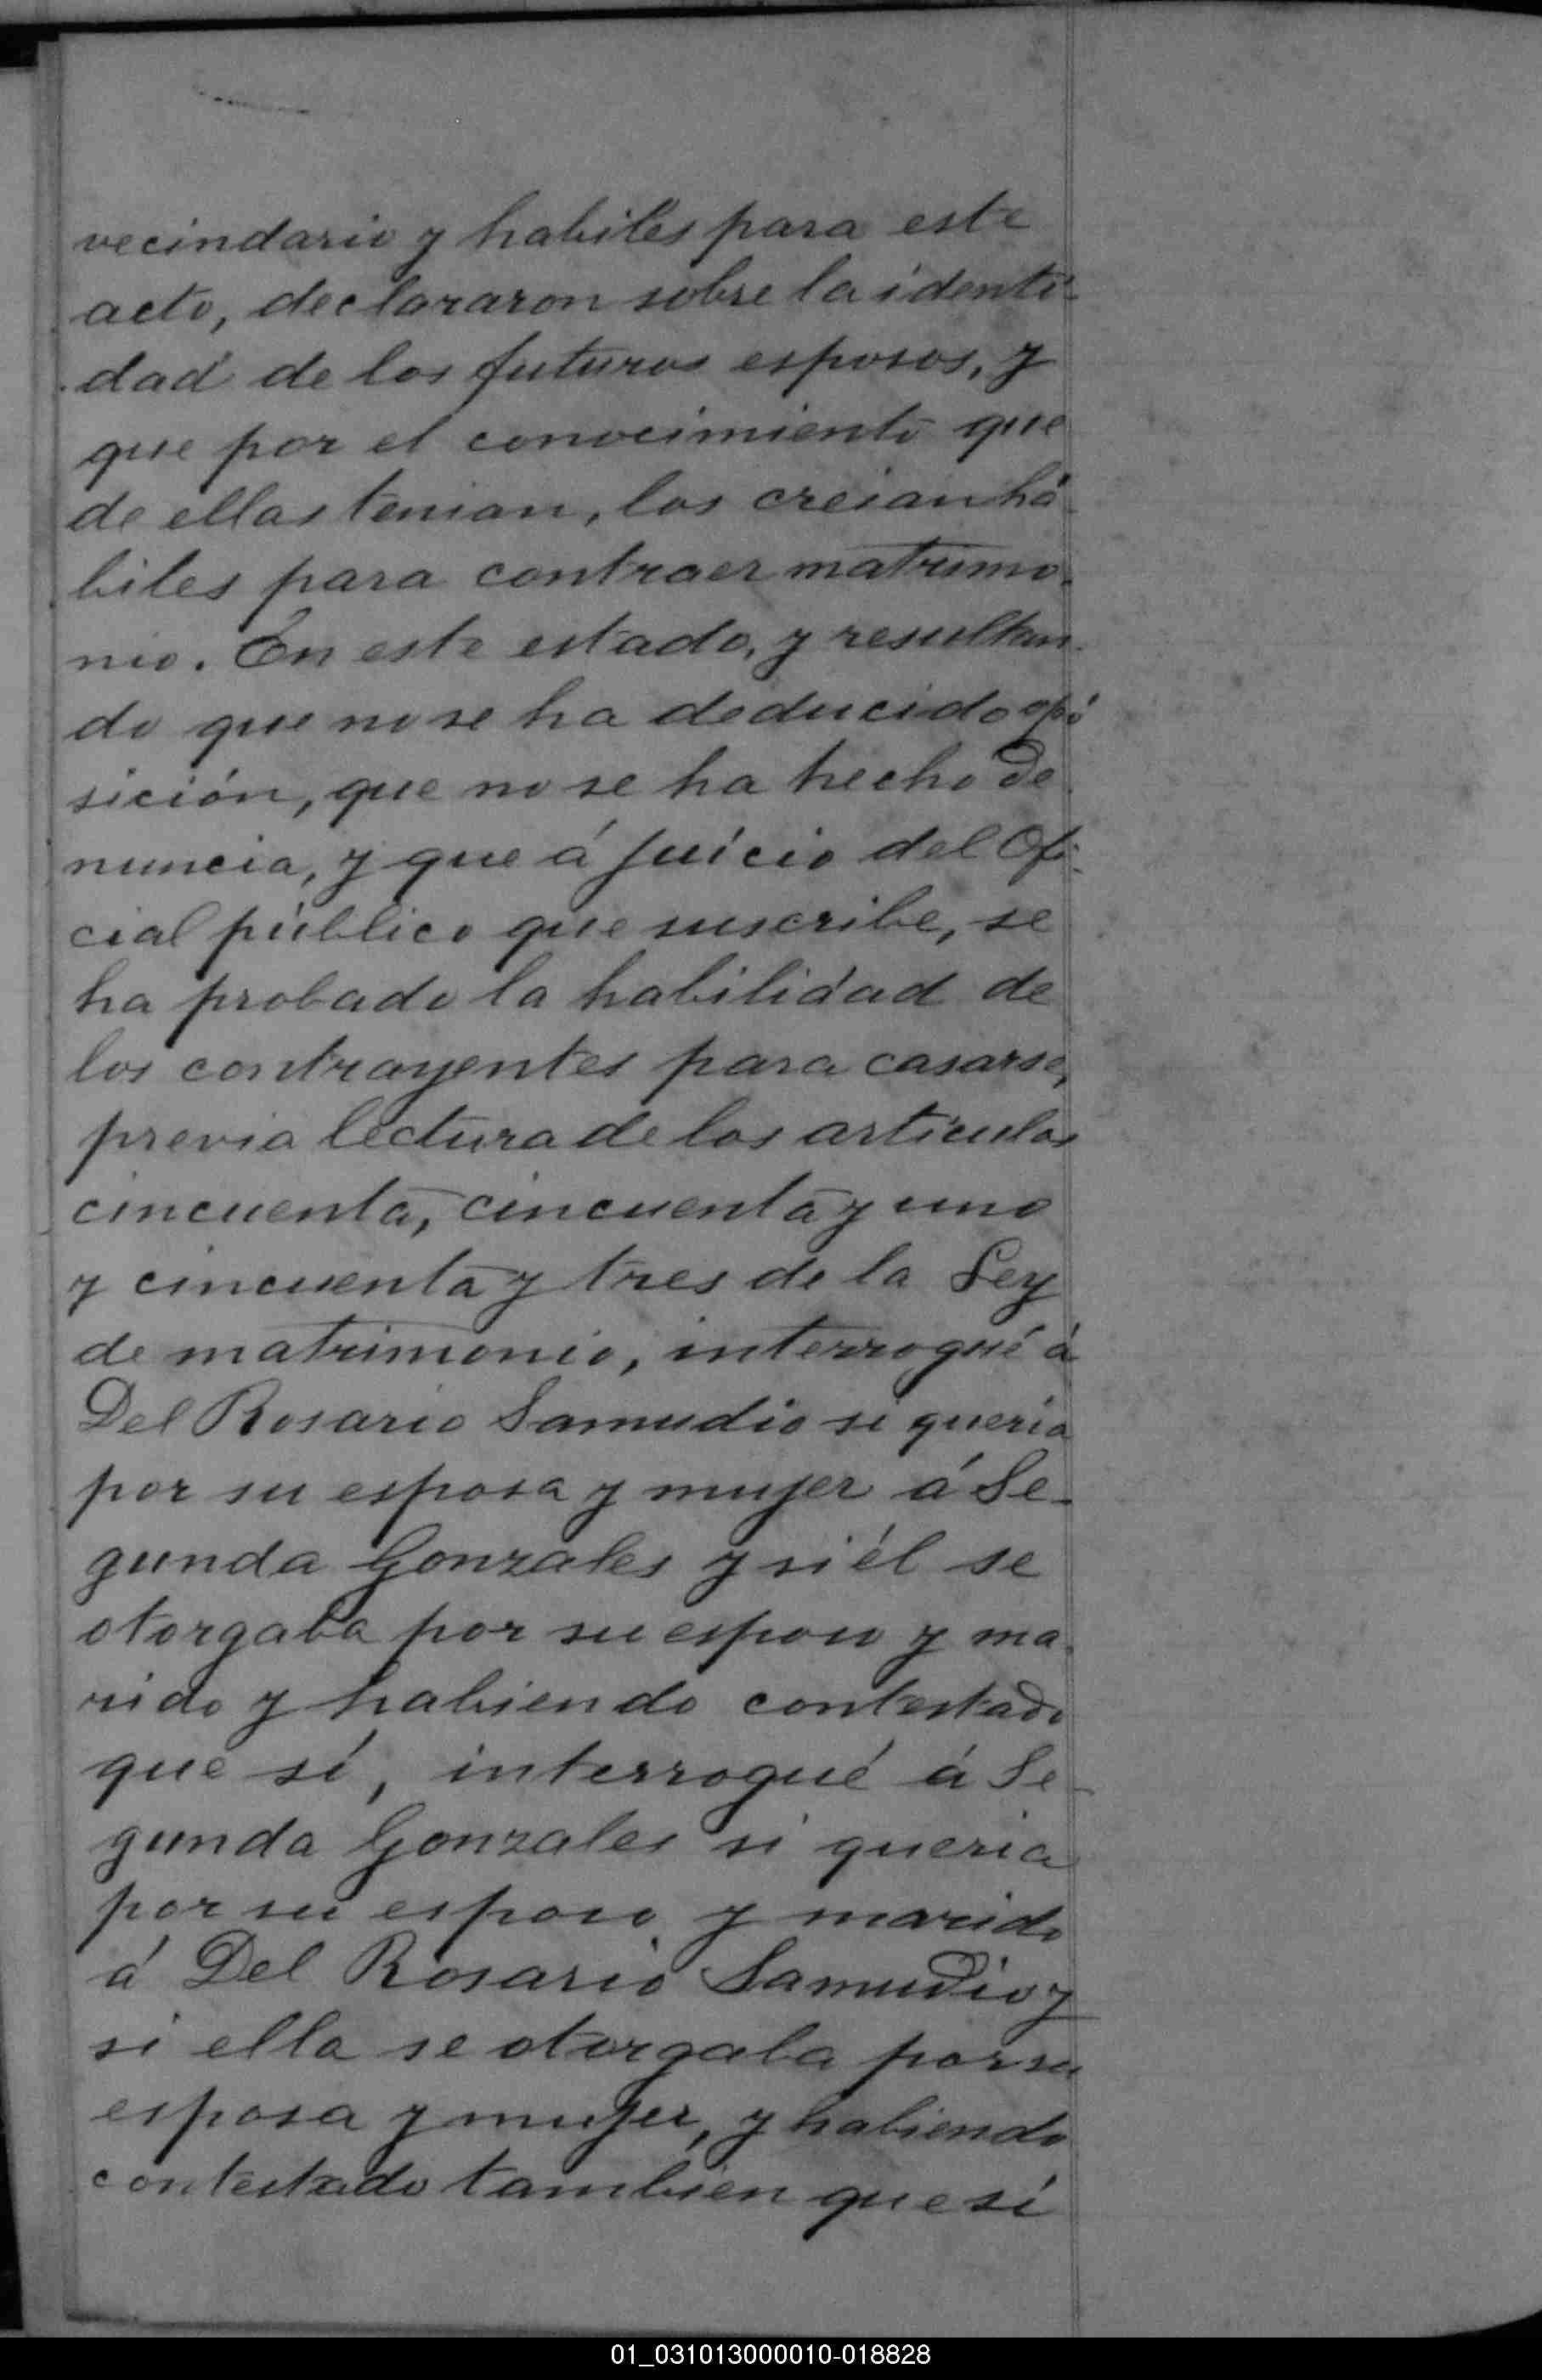 vecindario y habiles para este
acto, declararon sobre la identi-
dad de los futuros esposos, y
que por el conocimiento que
de ellos tenian, los creian há-
biles para contraer matrimo-
nio. En este estado, y resultan-
do que no se ha deducido opo
sición, que no se ha hecho de
nuncia, y que á juicio del Ofi-
cial público que suscribe, se
ha probado la habilidad de
los contrayentes para casarse,
previa lectura de los articulos
cincuenta, cincuenta y uno
y cincuenta y tres de la Ley
de matrimonio, interrogué á
Del Rosario Samudio si queria
por su esposa y mujer á Se-
gunda Gonzales y si él se
otorgaba por su esposo y ma-
rido y habiendo contestado
que sí, interrogué á Se-
gunda Gonzales si queria
por su esposo y marido
á Del Rosario Samudio y
si ella se otorgaba por su
esposa y mujer, y habiendo
contestado tambien que sí
01_031013000010-018828